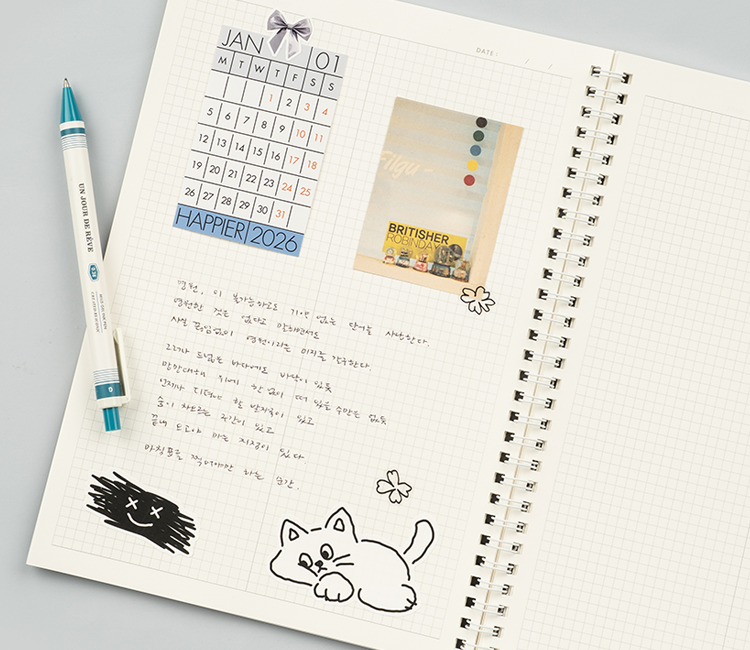 DATE : / /
JAN 01
M T W T F S S
1 2 3 4
5 6 7 8 9 10 11
12 13 14 15 16 17 18
19 20 21 22 23 24 25
26 27 28 29 30 31
HAPPIER 2026
Filga
BRITISHER
ROBINDAY
UN JOUR DE RÊVE
영원, 이 불가능하고도 기약 없는 단어를 사랑한다.
영원한 것은 없다고 말하면서도
사실 끊임없이 영원이라는 의미를 갈구한다.
그러나 드넓은 바다에도 바닥이 있듯
망망대해 위에 한없이 떠 있을 수만은 없듯
언제나 디뎌야 할 발자국이 있고
숨이 차오르는 구간이 있고
끝내 도달야 마는 지점이 있다
마침표를 찍어야만 하는 순간.